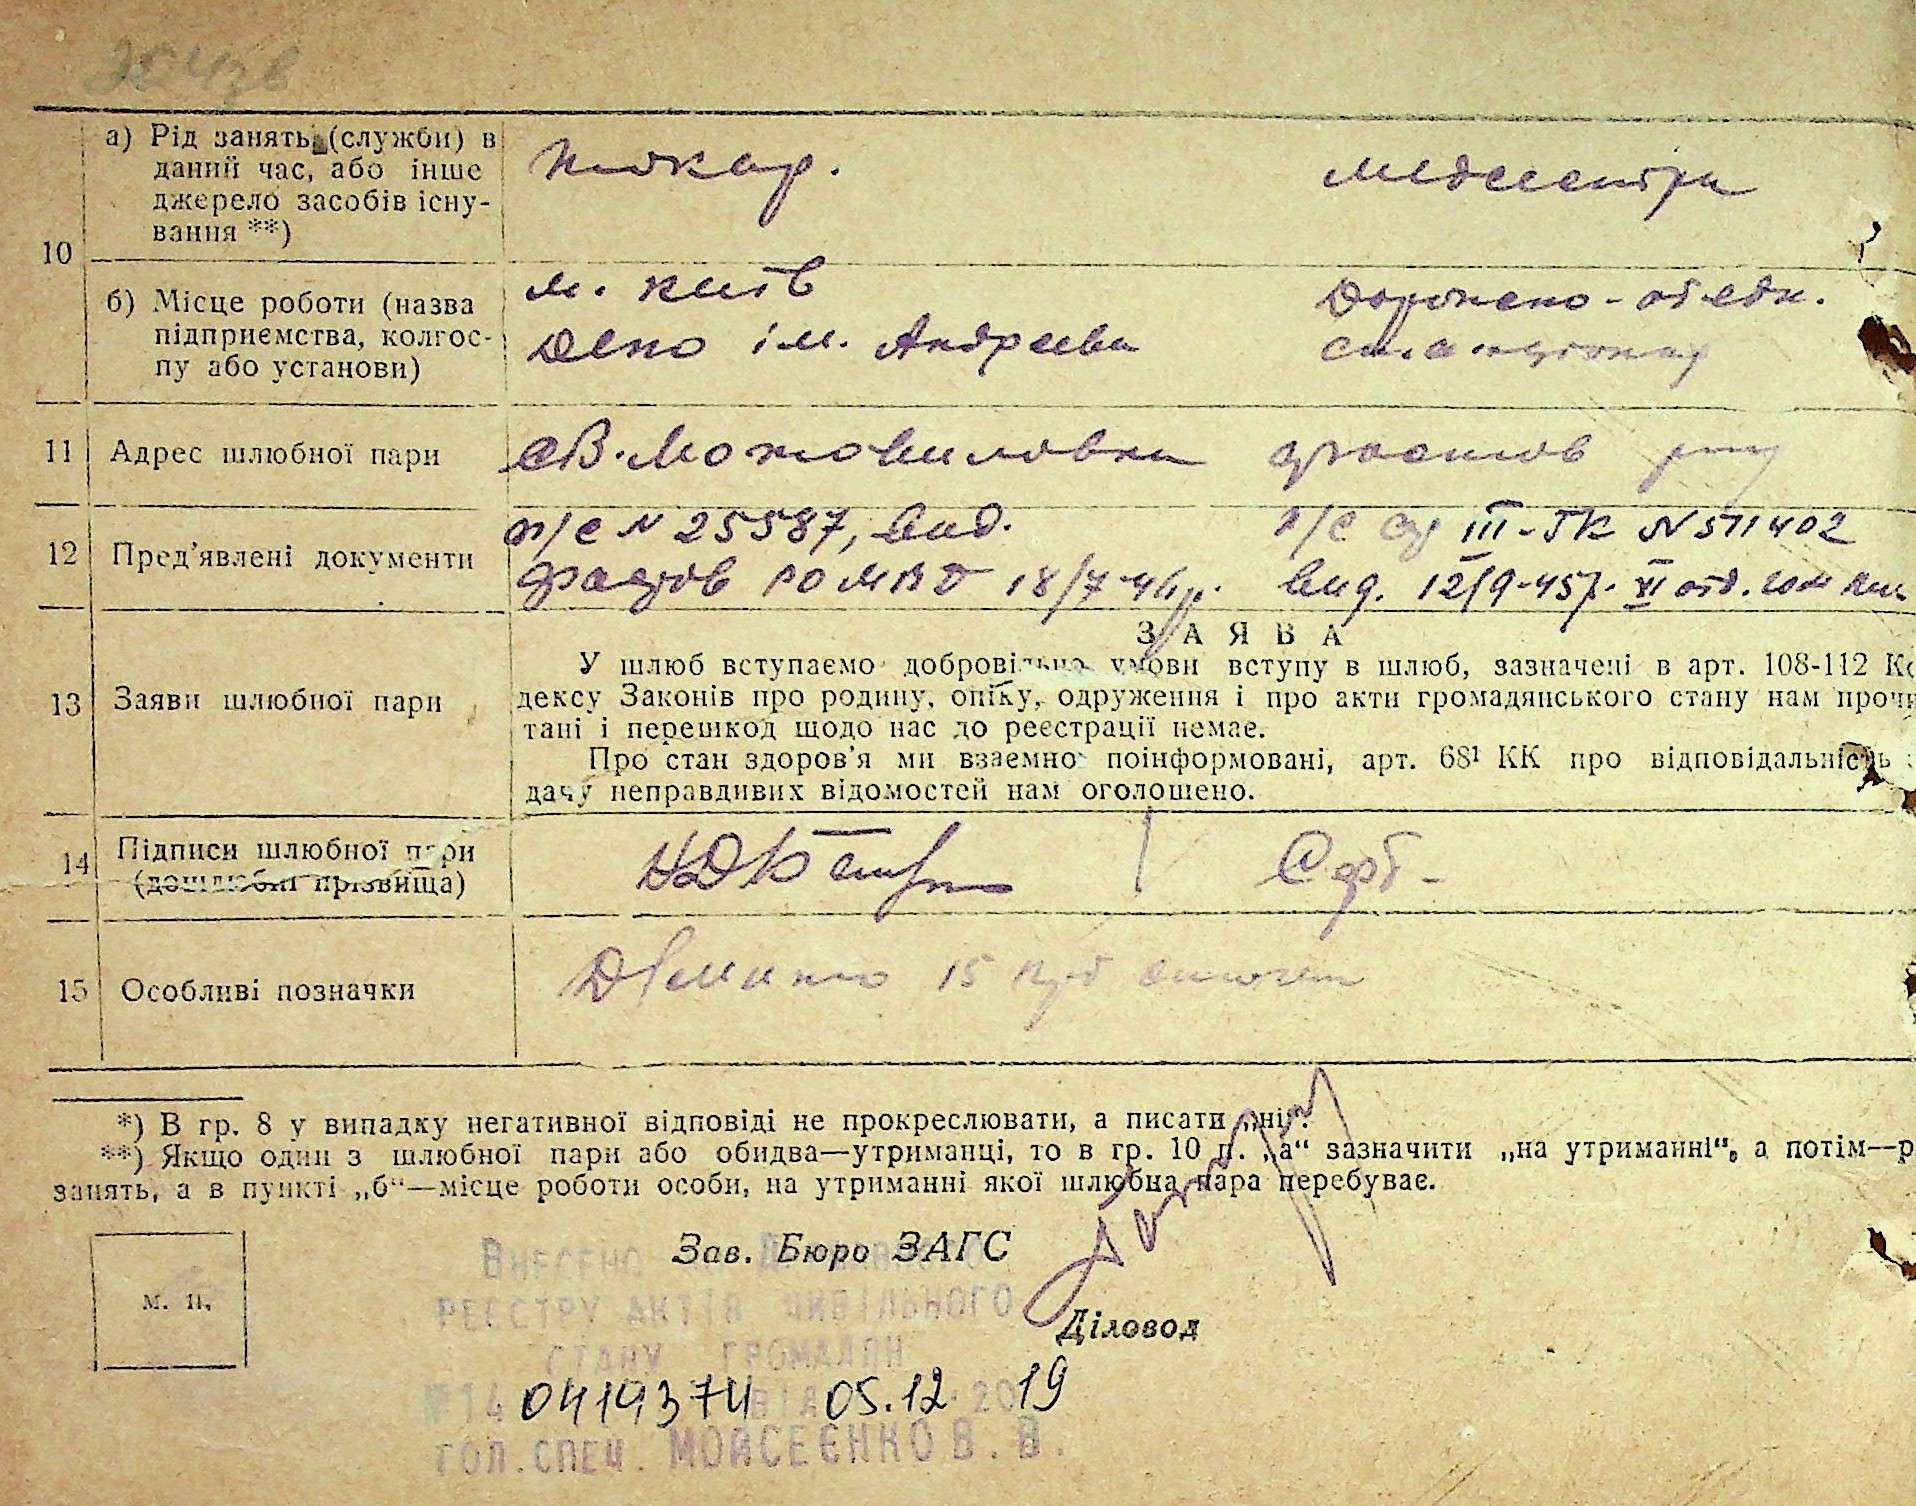 10
а) Рід занять (службы) в
даний час, або інше
джерело засобів існу-
вання **)
токар.
медсестра
б) Місце роботи (назва
підприємства, колгос-
пу або установи)
м. Київ
Депо ім. Андреева
Дорожно-об'єдн.
стаціонар
11 Адрес шлюбної пари
Мотовиловка Фастов р-ну
12 Пред'явлені документи
п/с № 25587, вид.
п/с III-ГК № 571402
Фастов РОМВД 18/7-46р.
вид. 12/9-45р. VI отд.
13 Заяви шлюбної пари
ЗАЯВА
У шлюб вступаємо добровільно умови вступу в шлюб, зазначені в арт. 108-112 Ко
дексу Законів про родину, опіку, одруження і про акти громадянського стану нам прочи
тані і перешкод щодо нас до реєстрації немає.
Про стан здоров'я ми взаємно поінформовані, арт. 68¹ КК про відповідальність
дачу неправдивих відомостей нам оголошено.
14 Підписи шлюбної пари
(дошлюбні прізвища)
15 Особливі позначки
15
*) В гр. 8 у випадку негативної відповіді не прокреслювати, а писати „ні".
**) Якщо один з шлюбної пари або обидва—утриманці, то в гр. 10 п. „а“ зазначити „на утриманні“, а потім—р
занять, а в пункті „б“—місце роботи особи, на утриманні якої шлюбна пара перебуває.
м. п.
Зав. Бюро ЗАГС
Діловод
ВНЕСЕНО ДО ДЕРЖАВНОГО
РЕЄСТРУ АКТІВ ЦИВІЛЬНОГО
СТАНУ ГРОМАДЯН
№14 0419374 ВІД 05.12.2019
ГОЛ.СПЕЦ. МОЙСЕЄНКО В.В.